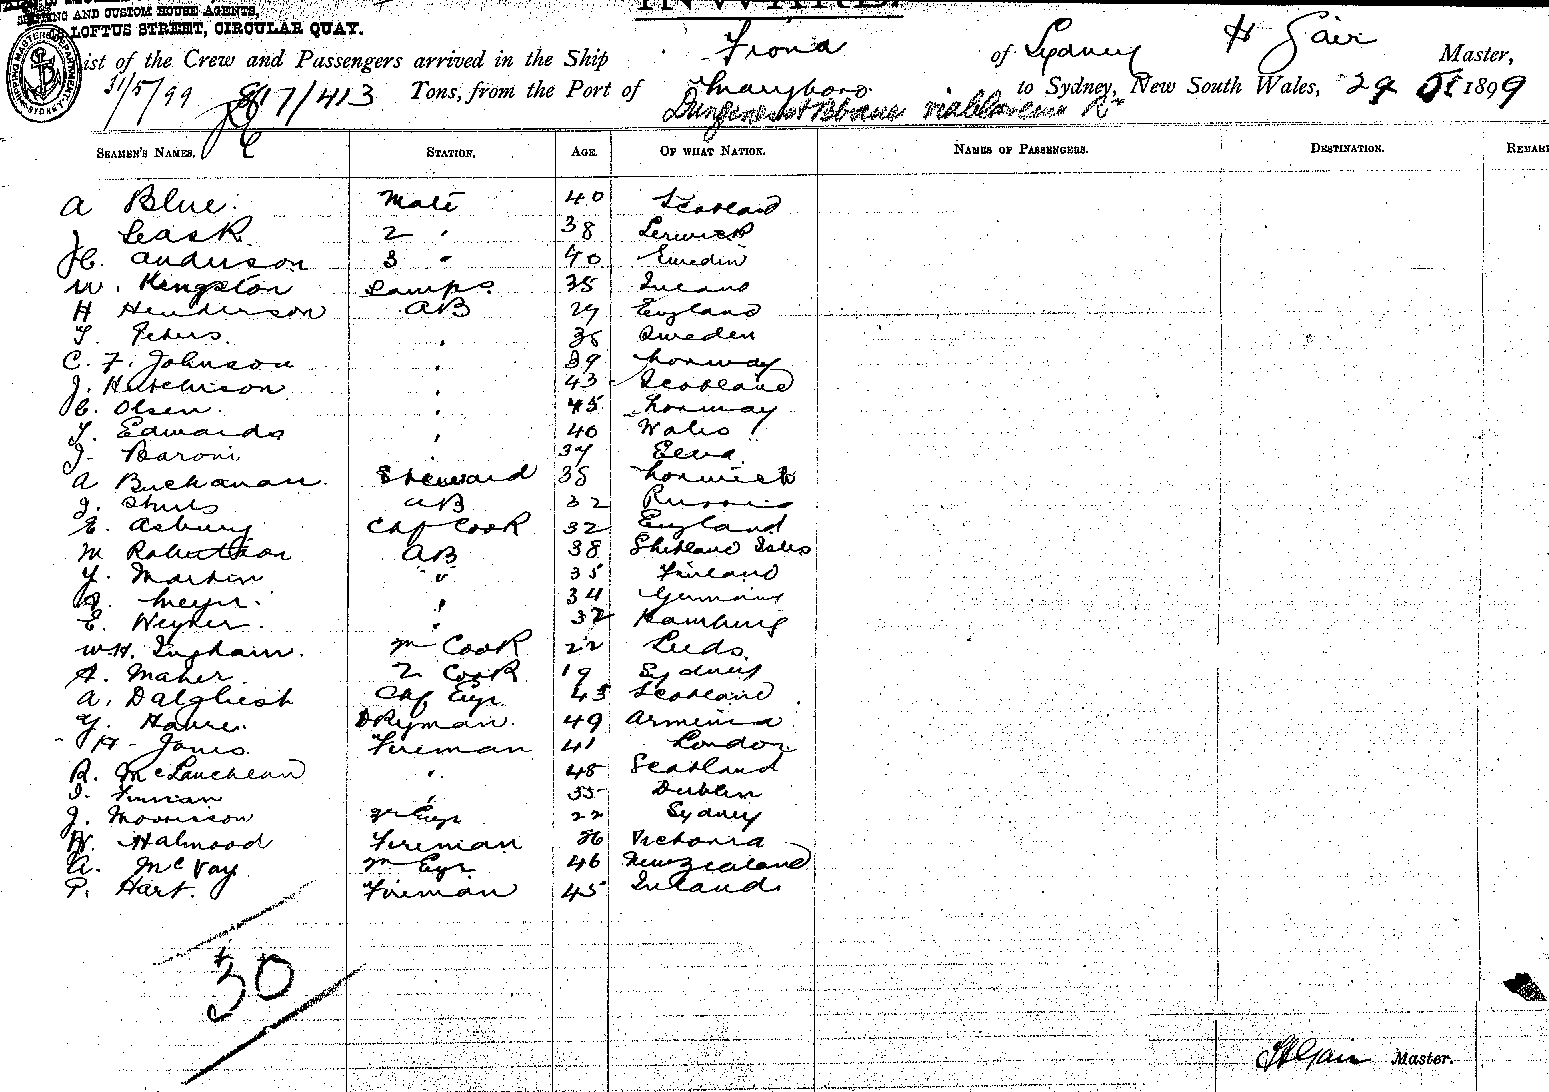 INWARD.
SHIPPING AND CUSTOM HOUSE AGENTS,
LOFTUS STREET, CIRCULAR QUAY.
List of the Crew and Passengers arrived in the Ship Fiona of Sydney H Gair Master,
31/5/99 817/413 Tons, from the Port of Maryboro to Sydney, New South Wales, 29 1899
Dungeness & Bbane via Clarence Rr
SEAMEN'S NAMES. STATION. AGE. OF WHAT NATION. NAMES OF PASSENGERS. DESTINATION. REMARK
A Blue. Mate 40 Scotland
J Leask 2 " 38 Lerwick
Anderson 3 " 40 Sweden
W. Kingston Lamps 35 Ireland
H Henderson AB 29 England
Peters. " Sweden
C. F. Johnson " 39 Norway
J. Hutchison " 43 Scotland
C. Olsen " 45 Norway
Edwards " 40 Wales
J. Baroni
A Buchanan. Steward 38
J. AB 32 Russia
E. Asbury Chf Cook 32 England
M Robertson AB 38 Shetland Isles
Martin " 35 Finland
Meyer. " 34 Germany
E. Weyher. " 32 Hamburg
W.H. Ingham. Cook 22 Leeds
A. Maher. 2 Cook 19 Sydney
A. Dalgliesh Chf Engr 45 Scotland
DKeyman. 49 Armenia
H. Jones Fireman 41 London
R. McLauchlan " 48 Scotland
" 35 Dublin
J. Morrisson Engr 22 Sydney
W. Halwood Fireman 36 Victoria
A. McVay Engr 46 New Zealand
P. Hart. Fireman 45 Ireland
30
H Gair Master.